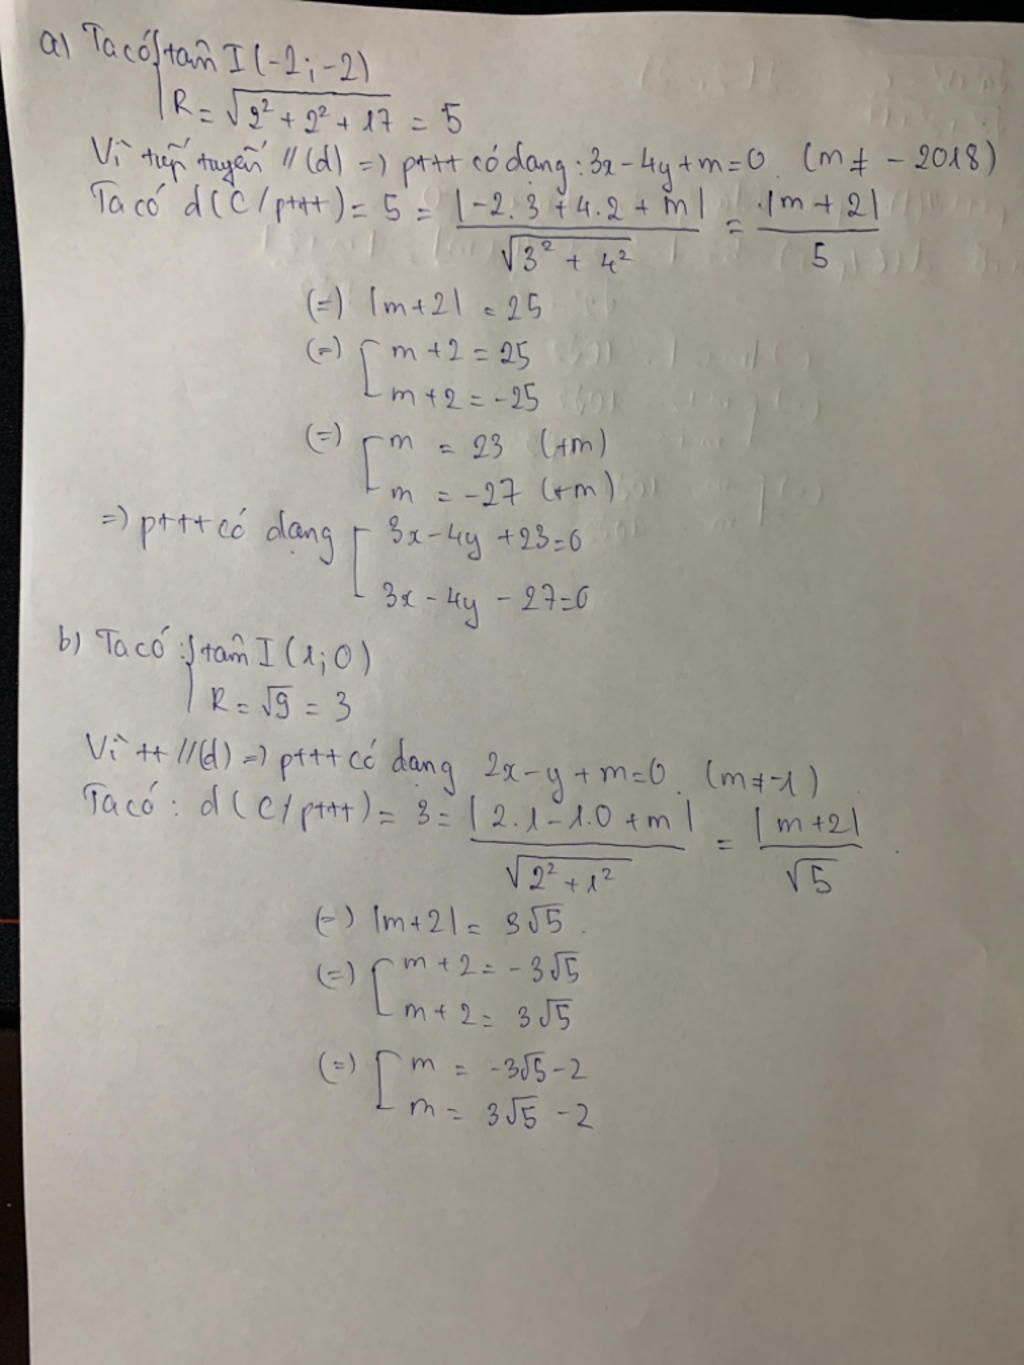 a) Ta có { tâm I(-2; -2)
R = √(2² + 2² + 17) = 5
Vì tiếp tuyến // (d) => pttt có dạng: 3x - 4y + m = 0. (m ≠ - 2018)
Ta có d(C/pttt) = 5 = |-2.3 + 4.2 + m| / √(3² + 4²) = |m + 2| / 5
(=) |m + 2| = 25
(=) [ m + 2 = 25
m + 2 = -25
(=) [ m = 23 (tm)
m = -27 (tm)
=> pttt có dạng [ 3x - 4y + 23 = 0
3x - 4y - 27 = 0
b) Ta có: { tâm I(1; 0)
R = √9 = 3
Vì tt // (d) => pttt có dạng 2x - y + m = 0. (m ≠ -1)
Ta có: d(C/pttt) = 3 = |2.1 - 1.0 + m| / √(2² + 1²) = |m + 2| / √5
(=) |m + 2| = 3√5.
(=) [ m + 2 = - 3√5
m + 2 = 3√5
(=) [ m = -3√5 - 2
m = 3√5 - 2